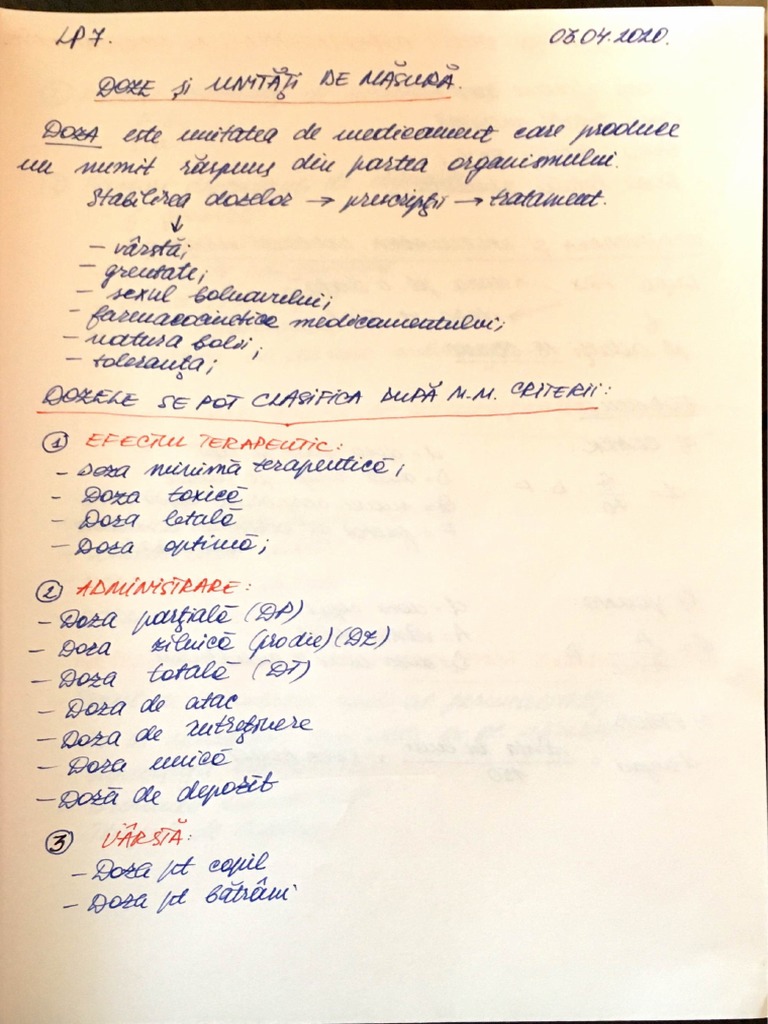 LP 7. 06.04.2020.
DOZE ȘI UNITĂȚI DE MĂSURĂ.
DOZA este unitatea de medicament care produce
un numit răspuns din partea organismului.
Stabilirea dozelor → prescripții → tratament.
↓
- vârstă;
- greutate;
- sexul bolnavului;
- farmacocinetica medicamentului;
- natura bolii;
- toleranța;
DOZELE SE POT CLASIFICA DUPĂ M.M. CRITERII:
① EFECTUL TERAPEUTIC:
- Doza minimă terapeutică;
- Doza toxică
- Doza letală
- Doza optimă;
② ADMINISTRARE:
- Doza parțială (DP)
- Doza zilnică (prodie) (DZ)
- Doza totală (DT)
- Doza de atac
- Doza de întreținere
- Doza unică
- Doză de depozit
③ VÂRSTĂ:
- Doza pt copil
- Doza pt bătrâni